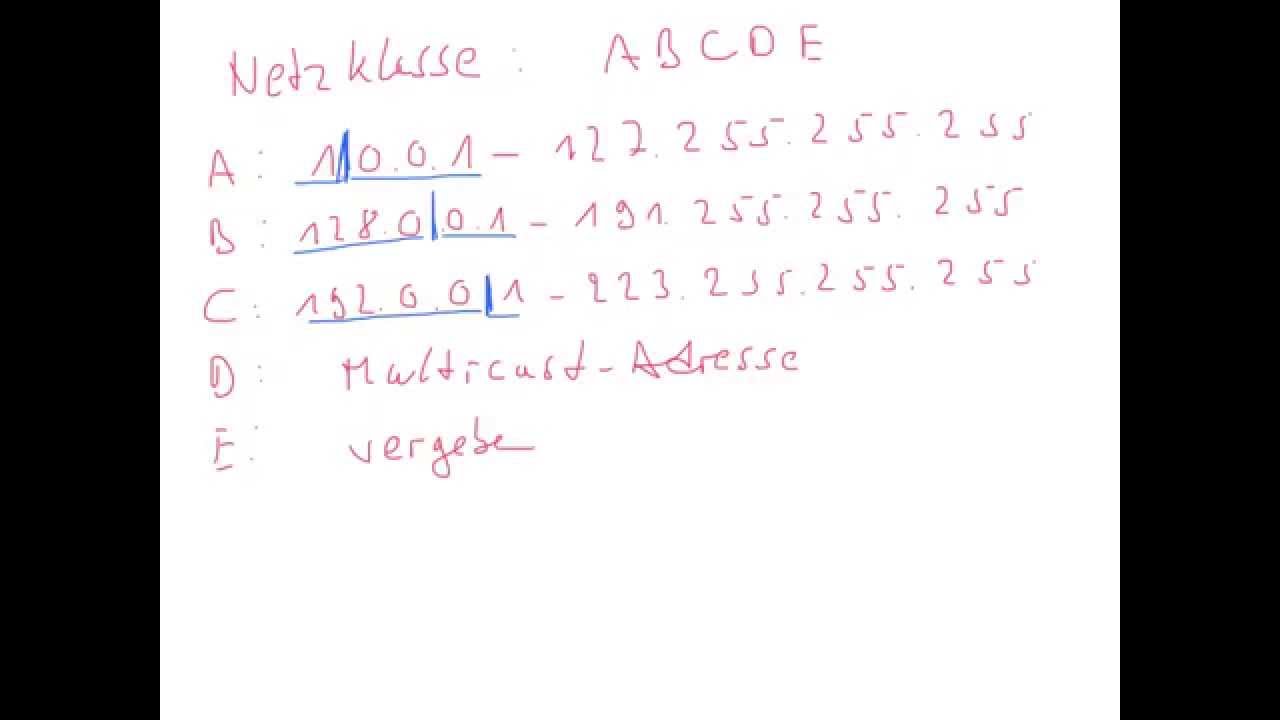 Netzklasse : A B C D E
A : 1|0.0.1 - 127.255.255.255
B : 128.0|.0.1 - 191.255.255.255
C : 192.0.0|1 - 223.255.255.255
D : Multicast-Adresse
E : vergeben